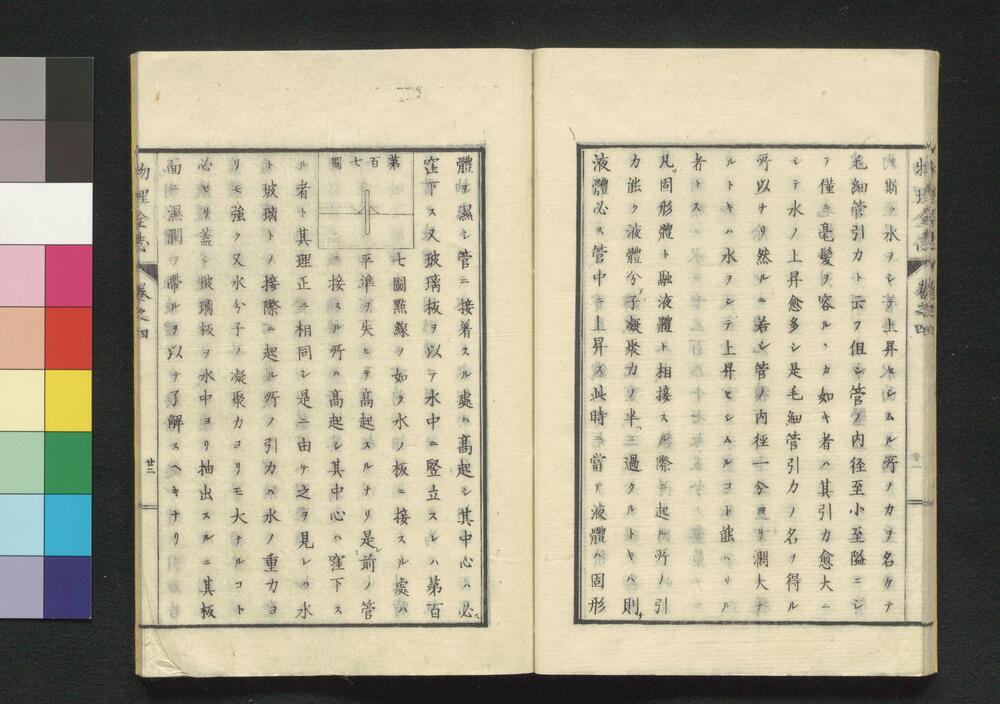 斯ク水ヲシテ上昇セシムル所ノ力ヲ名ケテ
毛細管引力ト云フ但シ管ノ内径至小至隘ニシ
テ僅ニ毫髪ヲ容ルヽカ如キ者ハ其引力愈大ニ
シテ水ノ上昇愈多シ是毛細管引力ノ名ヲ得ル
所以ナリ然ルニ若シ管ノ内径一分ヨリ濶大ナ
ルトキハ水ヲシテ上昇セシムルコト能ハサル
者トス
凡固形體ト融液體ト相接スル際ニ起ル所ノ引
力能ク液體分子凝聚力ノ半ニ過クルトキハ則
液體必ス管中ニ上昇ス此時ニ當テ液體ハ固形
物理全志
卷之四
體ヲ濕シ管ニ接着スル處ハ髙起シ其中心ハ必
窪下ス又玻璃板ヲ以テ水中ニ竪立スレハ第百
七圖㸃線ノ如ク水ノ板ニ接スル處ハ
平準ヲ失ヒテ髙起スルナリ是前ノ管
ニ接スル所ハ髙起シ其中心ハ窪下ス
第百七圖
ル者ト其理正ニ相同シ是ニ由テ之ヲ見レハ水
ト玻璃トノ接際ニ起ル所ノ引力ハ水ノ重力ヨ
リモ強ク又水分子ノ凝聚力ヨリモ大ナルコト
必セリ蓋シ玻璃板ヲ水中ヨリ抽出スルニ其板
面ニ濕潤ヲ帶ルヲ以テ了解スヘキナリ
物理全志
卷之四
廿二